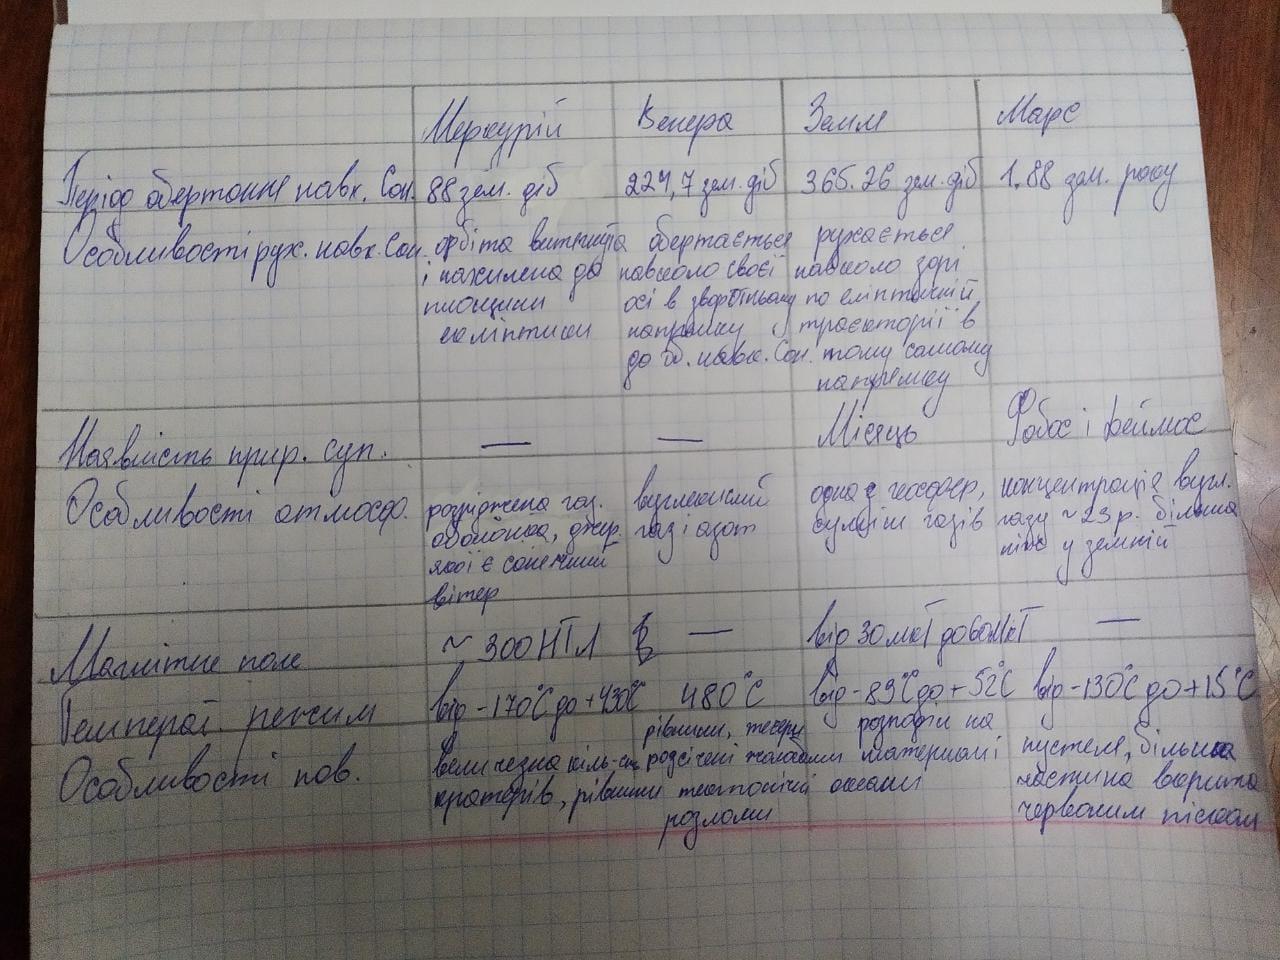 Меркурій Венера Земля Марс
Період обертання навк. Сон. 88 зем. діб 224,7 зем. діб 365.26 зем. діб 1.88 зем. року
Особливості рух. навк. Сон. орбіта витягнута обертається рухається
і нахилена до навколо своєї навколо зорі
площини осі в зворотньому по еліптичній
екліптики напрямку траєкторії в
до об. навк. Сон. тому самому
напрямку
Наявність прир. суп. — — Місяць Фобос і Деймос
Особливості атмосф. розріджена газ. вуглекислий одна з геосфер, концентрація вугл.
оболонка, джер. газ і азот суміш газів газу ~ 23 р. більша
якої є сонячний ніж у земній
вітер
Магнітне поле ~ 300 НТЛ — від 30 мкТ до 60 мкТ —
Температ. режим від -170°C до +430°C 480°C від -89°C до +52°C від -130°C до +15°C
Особливості пов. величезна кіль-сть рівнини, розсічені розподіл на материки і пустеля, більша
кратерів, рівнини тектонічні океани частина вкрита
розломи червоним піском